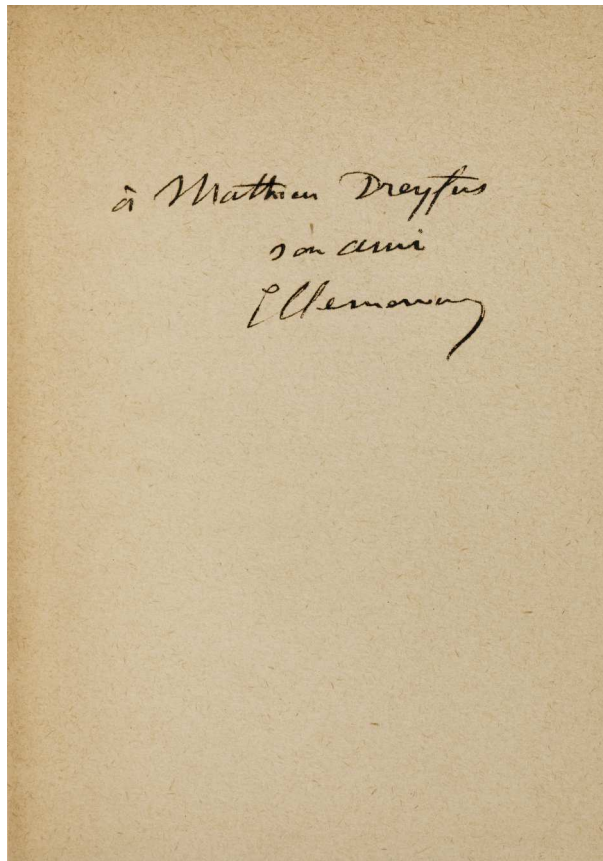 à Mathieu Dreyfus
son ami
GClemenceau